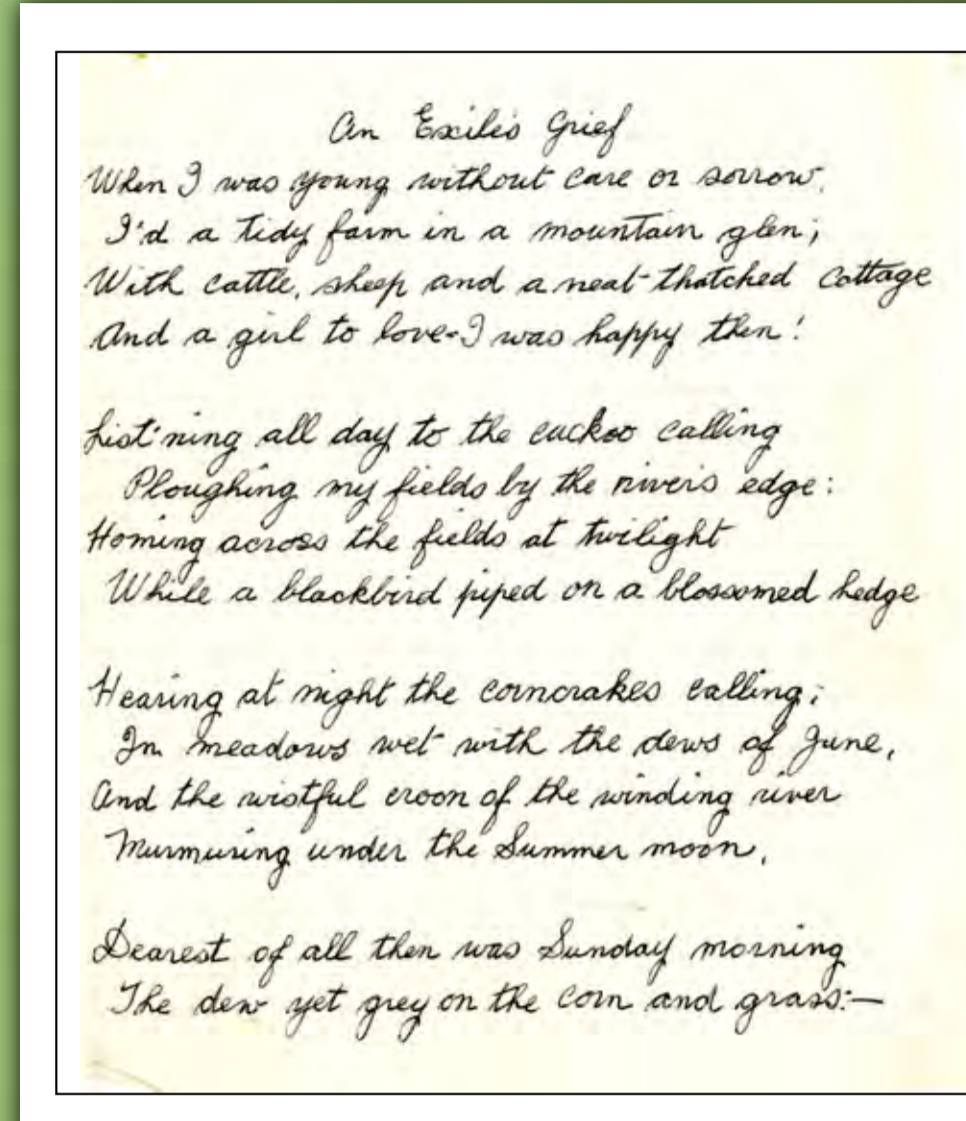 An Exile's Grief
When I was young without care or sorrow,
I'd a tidy farm in a mountain glen;
With cattle, sheep and a neat-thatched cottage
And a girl to love-I was happy then!
List'ning all day to the cuckoo calling
Ploughing my fields by the river's edge:
Homing across the fields at twilight
While a blackbird piped on a blossomed hedge
Hearing at night the corncrakes calling;
In meadows wet with the dews of June,
And the wistful croon of the winding river
Murmuring under the Summer moon,
Dearest of all then was Sunday morning
The dew yet grey on the corn and grass:—